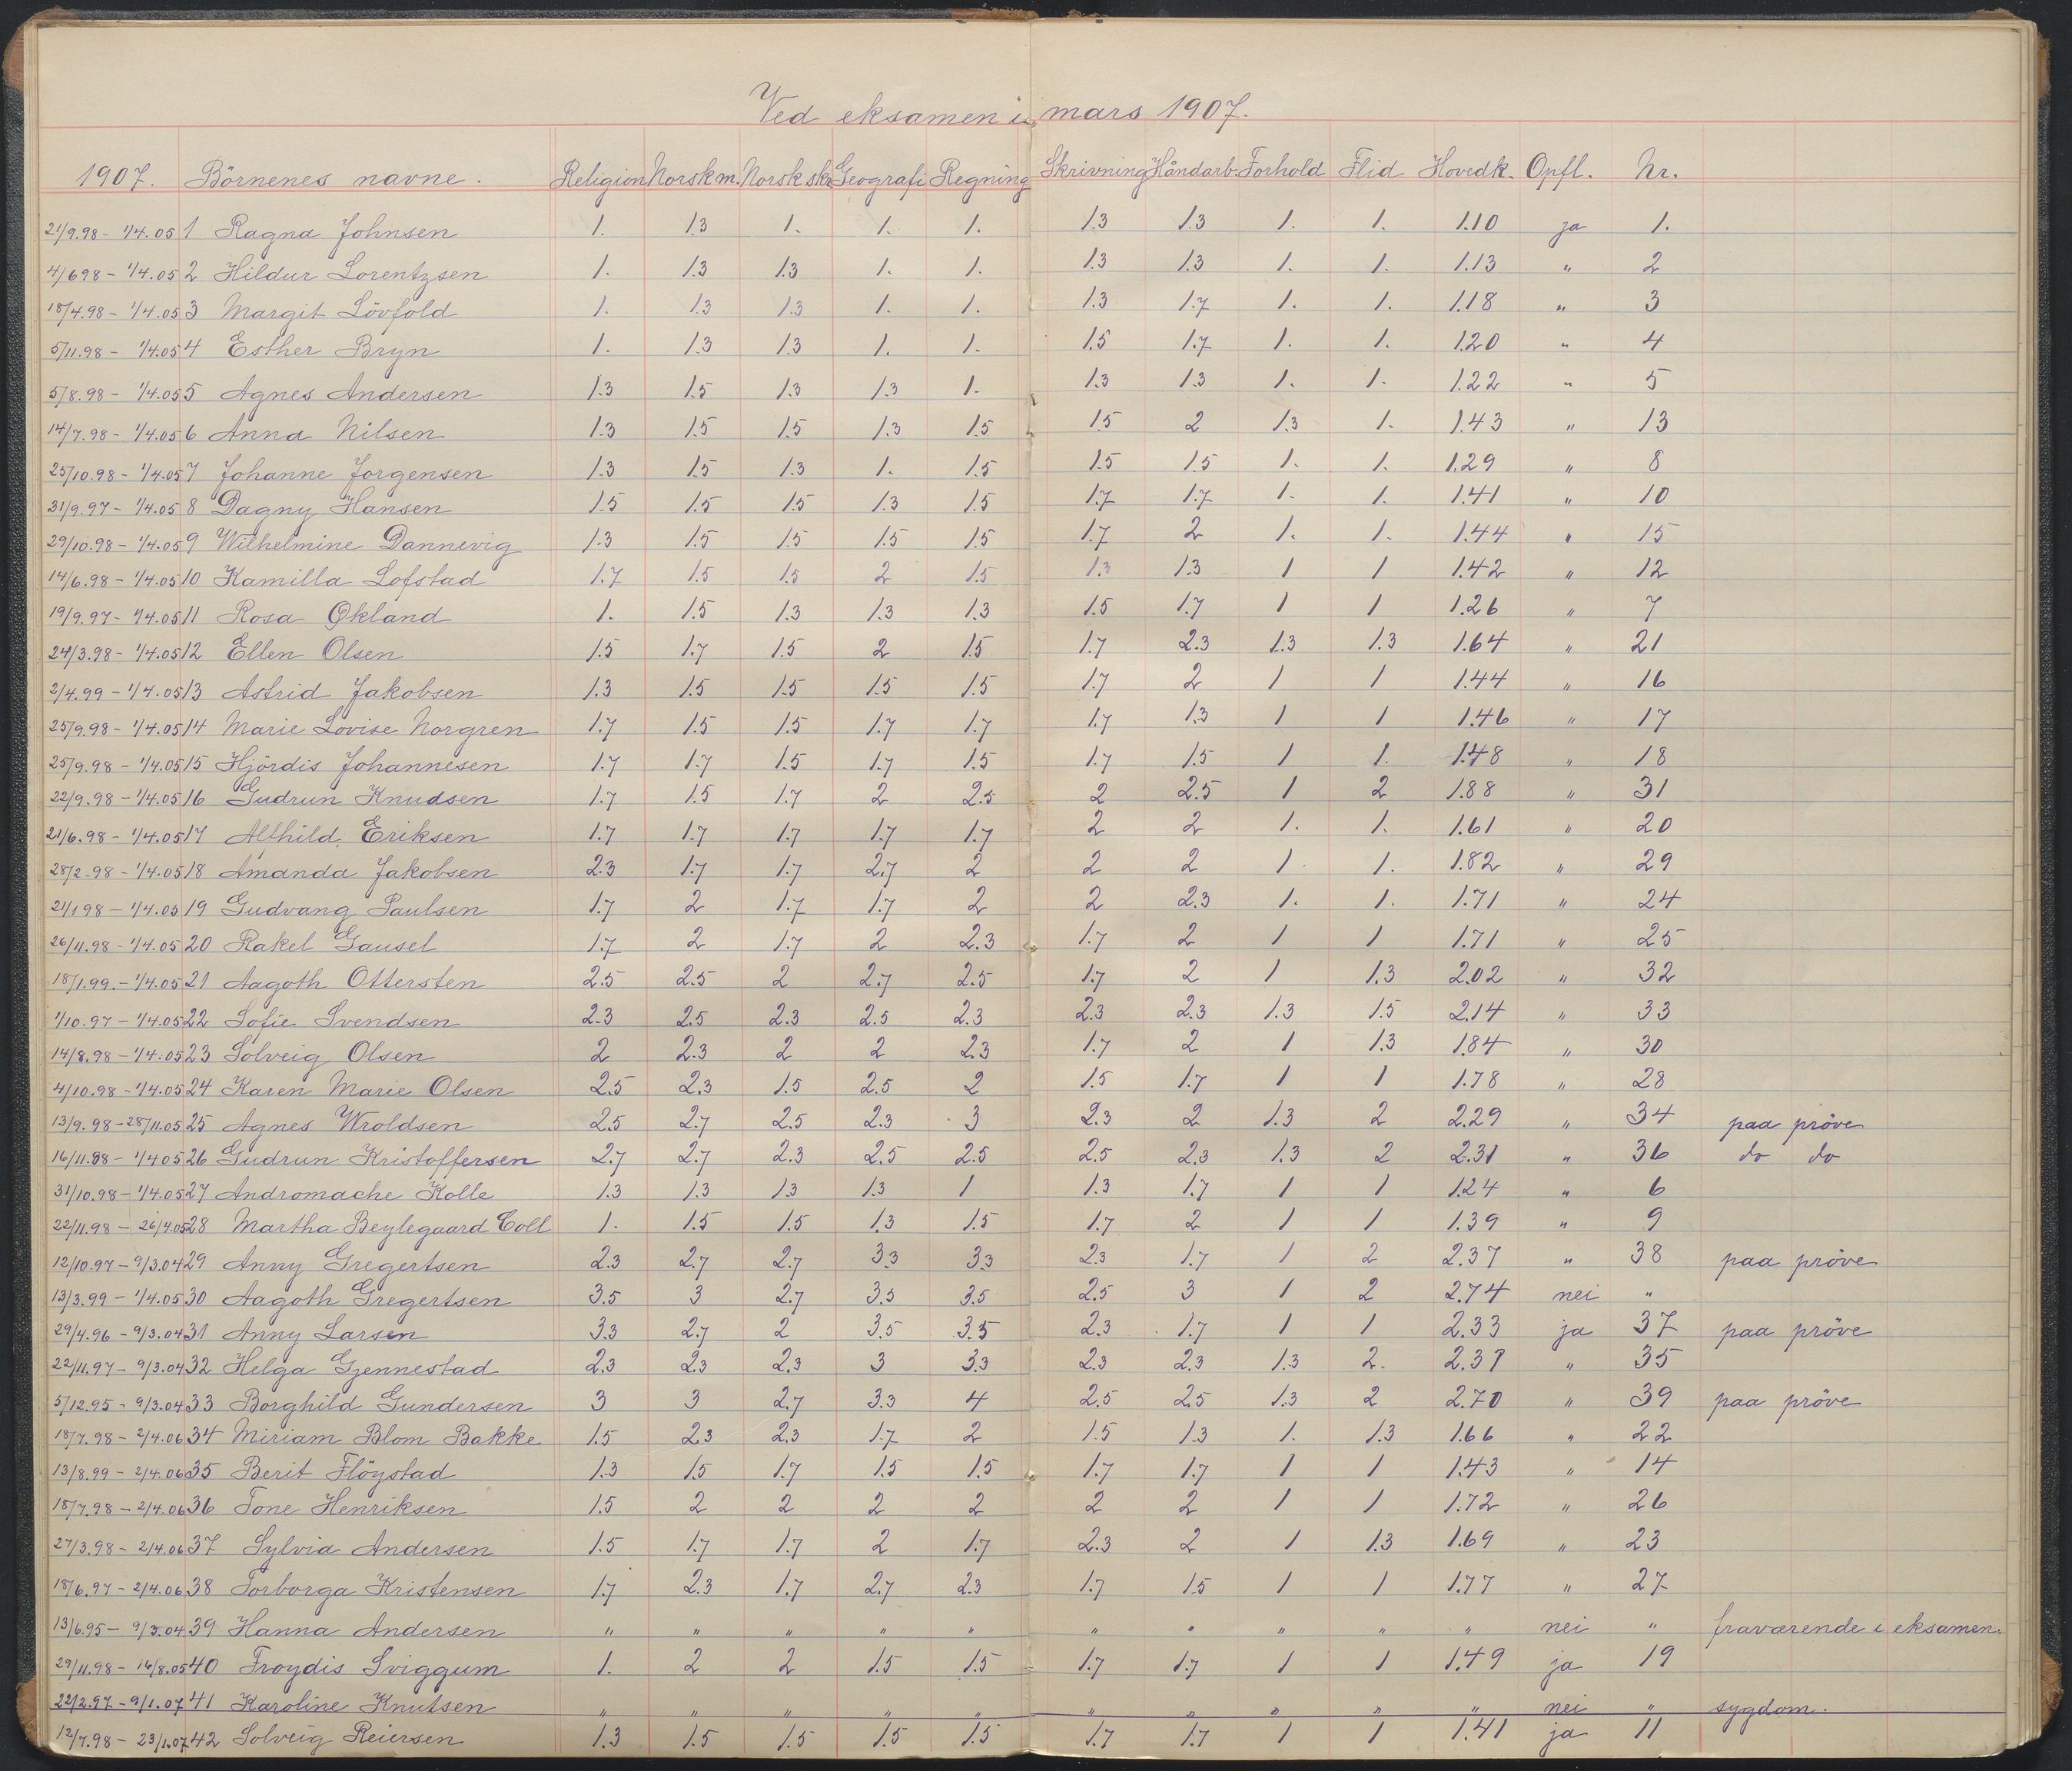 Ved eksamen i mars 1907.
1907. Börnenes navne. Religion Norsk m. Norsk skr. Geografi Regning Skrivning Håndarb. Forhold Flid Hovedk. Opfl. Nr.
21/9.98 - 1/4.05 1 Ragna Johnsen 1. 1.3 1. 1. 1. 1.3 1.3 1. 1. 1.10 ja 1.
4/6 98 - 1/4.05 2 Hildur Lorentzsen 1. 1.3 1.3 1. 1. 1.3 1.3 1. 1. 1.13 " 2
18/4.98 - 1/4.05 3 Margit Lövfold 1. 1.3 1.3 1. 1. 1.3 1.7 1. 1. 1.18 " 3
5/11.98 - 1/4.05 4 Esther Bryn 1. 1.3 1.3 1. 1. 1.5 1.7 1. 1. 1.20 " 4
5/8.98 - 1/4.05 5 Agnes Andersen 1.3 1.5 1.3 1.3 1. 1.3 1.3 1. 1. 1.22 " 5
14/7.98 - 1/4.05 6 Anna Nilsen 1.3 1.5 1.5 1.3 1.5 1.5 2 1.3 1. 1.43 " 13
25/10.98 - 1/4.05 7 Johanne Jorgensen 1.3 1.5 1.3 1. 1.5 1.5 1.5 1. 1. 1.29 " 8
31/9.97 - 1/4.05 8 Dagny Hansen 1.5 1.5 1.5 1.3 1.5 1.7 1.7 1. 1. 1.41 " 10
29/10.98 - 1/4.05 9 Wilhelmine Dannevig 1.3 1.5 1.5 1.5 1.5 1.7 2 1. 1. 1.44 " 15
14/6.98 - 1/4.05 10 Kamilla Lofstad 1.7 1.5 1.5 2 1.5 1.3 1.3 1 1 1.42 " 12
19/9.97 - 1/4.05 11 Rosa Økland 1. 1.5 1.3 1.3 1.3 1.5 1.7 1 1 1.26 " 7
24/3.98 - 1/4.05 12 Ellen Olsen 1.5 1.7 1.5 2 1.5 1.7 2.3 1.3 1.3 1.64 " 21
2/4.99 - 1/4.05 13 Astrid Jakobsen 1.3 1.5 1.5 1.5 1.5 1.7 2 1 1 1.44 " 16
25/9.98 - 1/4.05 14 Marie Lovise Norgren 1.7 1.5 1.5 1.7 1.7 1.7 1.3 1 1 1.46 " 17
25/9.98 - 1/4.05 15 Hjördis Johannesen 1.7 1.7 1.5 1.7 1.5 1.7 1.5 1 1. 1.48 " 18
22/9.98 - 1/4.05 16 Gudrun Knudsen 1.7 1.5 1.7 2 2.5 2 2.5 1 2 1.88 " 31
21/6.98 - 1/4.05 17 Alfhild Eriksen 1.7 1.7 1.7 1.7 1.7 2 2 1. 1. 1.61 " 20
28/2.98 - 1/4.05 18 Amanda Jakobsen 2.3 1.7 1.7 2.7 2 2 2 1. 1. 1.82 " 29
21/1 98 - 1/4.05 19 Gudvang Paulsen 1.7 2 1.7 1.7 2 2 2.3 1. 1. 1.71 " 24
26/11.98 - 1/4.05 20 Rakel Gausel 1.7 2 1.7 2 2.3 1.7 2 1 1 1.71 " 25
18/1.99. - 1/4.05 21 Aagoth Ottersten 2.5 2.5 2 2.7 2.5 1.7 2 1 1.3 2.02 " 32
1/10.97 - 1/4.05 22 Sofie Svendsen 2.3 2.5 2.3 2.5 2.3 2.3 2.3 1.3 1.5 2.14 " 33
14/8.98 - 1/4.05 23 Solveig Olsen 2 2.3 2 2 2.3 1.7 2 1 1.3 1.84 " 30
4/10.98 - 1/4.05 24 Karen Marie Olsen 2.5 2.3 1.5 2.5 2 1.5 1.7 1 1 1.78 " 28
13/9.98 - 28/11.05 25 Agnes Wroldsen 2.5 2.7 2.5 2.3 3 2.3 2 1.3 2 2.29 " 34 paa pröve
16/11.98 - 1/4 05 26 Gudrun Kristoffersen 2.7 2.7 2.3 2.5 2.5 2.5 2.3 1.3 2 2.31 " 36 do do
31/10.98 - 1/4.05 27 Andromache Kolle 1.3 1.3 1.3 1.3 1 1.3 1.7 1 1 1.24 " 6
22/11.98 - 26/4.05 28 Martha Beylegaard Coll 1. 1.5 1.5 1.3 1.5 1.7 2 1 1 1.39 " 9
12/10.97 - 9/3.04 29 Anny Gregertsen 2.3 2.7 2.7 3.3 3.3 2.3 1.7 1 2 2.37 " 38 paa pröve
13/3.99 - 1/4.05 30 Aagoth Gregertsen 3.5 3 2.7 3.5 3.5 2.5 3 1 2 2.74 nei "
29/4.96 - 9/3.04 31 Anny Larsen 3.3 2.7 2 3.5 3.5 2.3 1.7 1 1 2.33 ja 37 paa pröve
22/11.97 - 9/3.04 32 Helga Gjennestad 2.3 2.3 2.3 3 3.3 2.3 2.3 1.3 2. 2.31 " 35
5/12.95 - 9/3.04 33 Borghild Gundersen 3 3 2.7 3.3 4 2.5 2.5 1.3 2 2.70 " 39 paa pröve
18/7.98 - 2/4.06 34 Miriam Blom Bakke 1.5 2.3 2.3 1.7 2 1.5 1.3 1. 1.3 1.66 " 22
13/8.99 - 2/4.06 35 Berit Flöystad 1.3 1.5 1.7 1.5 1.5 1.7 1.7 1 1 1.43 " 14
18/7.98 - 2/4.06 36 Tone Henriksen 1.5 2 2 2 2 2 2 1 1 1.72 " 26
27/3.98 - 2/4.06 37 Sylvia Andersen 1.5 1.7 1.7 2 1.7 2.3 2 1 1.3 1.69 " 23
18/6.97 - 2/4.06 38 Torborga Kristensen 1.7 2.3 1.7 2.7 2.3 1.7 1.5 1 1 1.77 " 27
13/6.95 - 9/3.04 39 Hanna Andersen " " " " " " " " " " nei " fraværende i eksamen.
29/11.98 - 16/8.05 40 Froydis Sviggum 1. 2 2 1.5 1.5 1.7 1.7 1 1 1.49 ja 19
22/2.97 - 9/1.07 41 Karoline Knutsen " " " " " " " " " " nei " sygdom.
12/7.98 - 23/1.07 42 Solveig Reiersen 1.3 1.5 1.5 1.5 1.5 1.7 1.7 1 1 1.41 ja 11